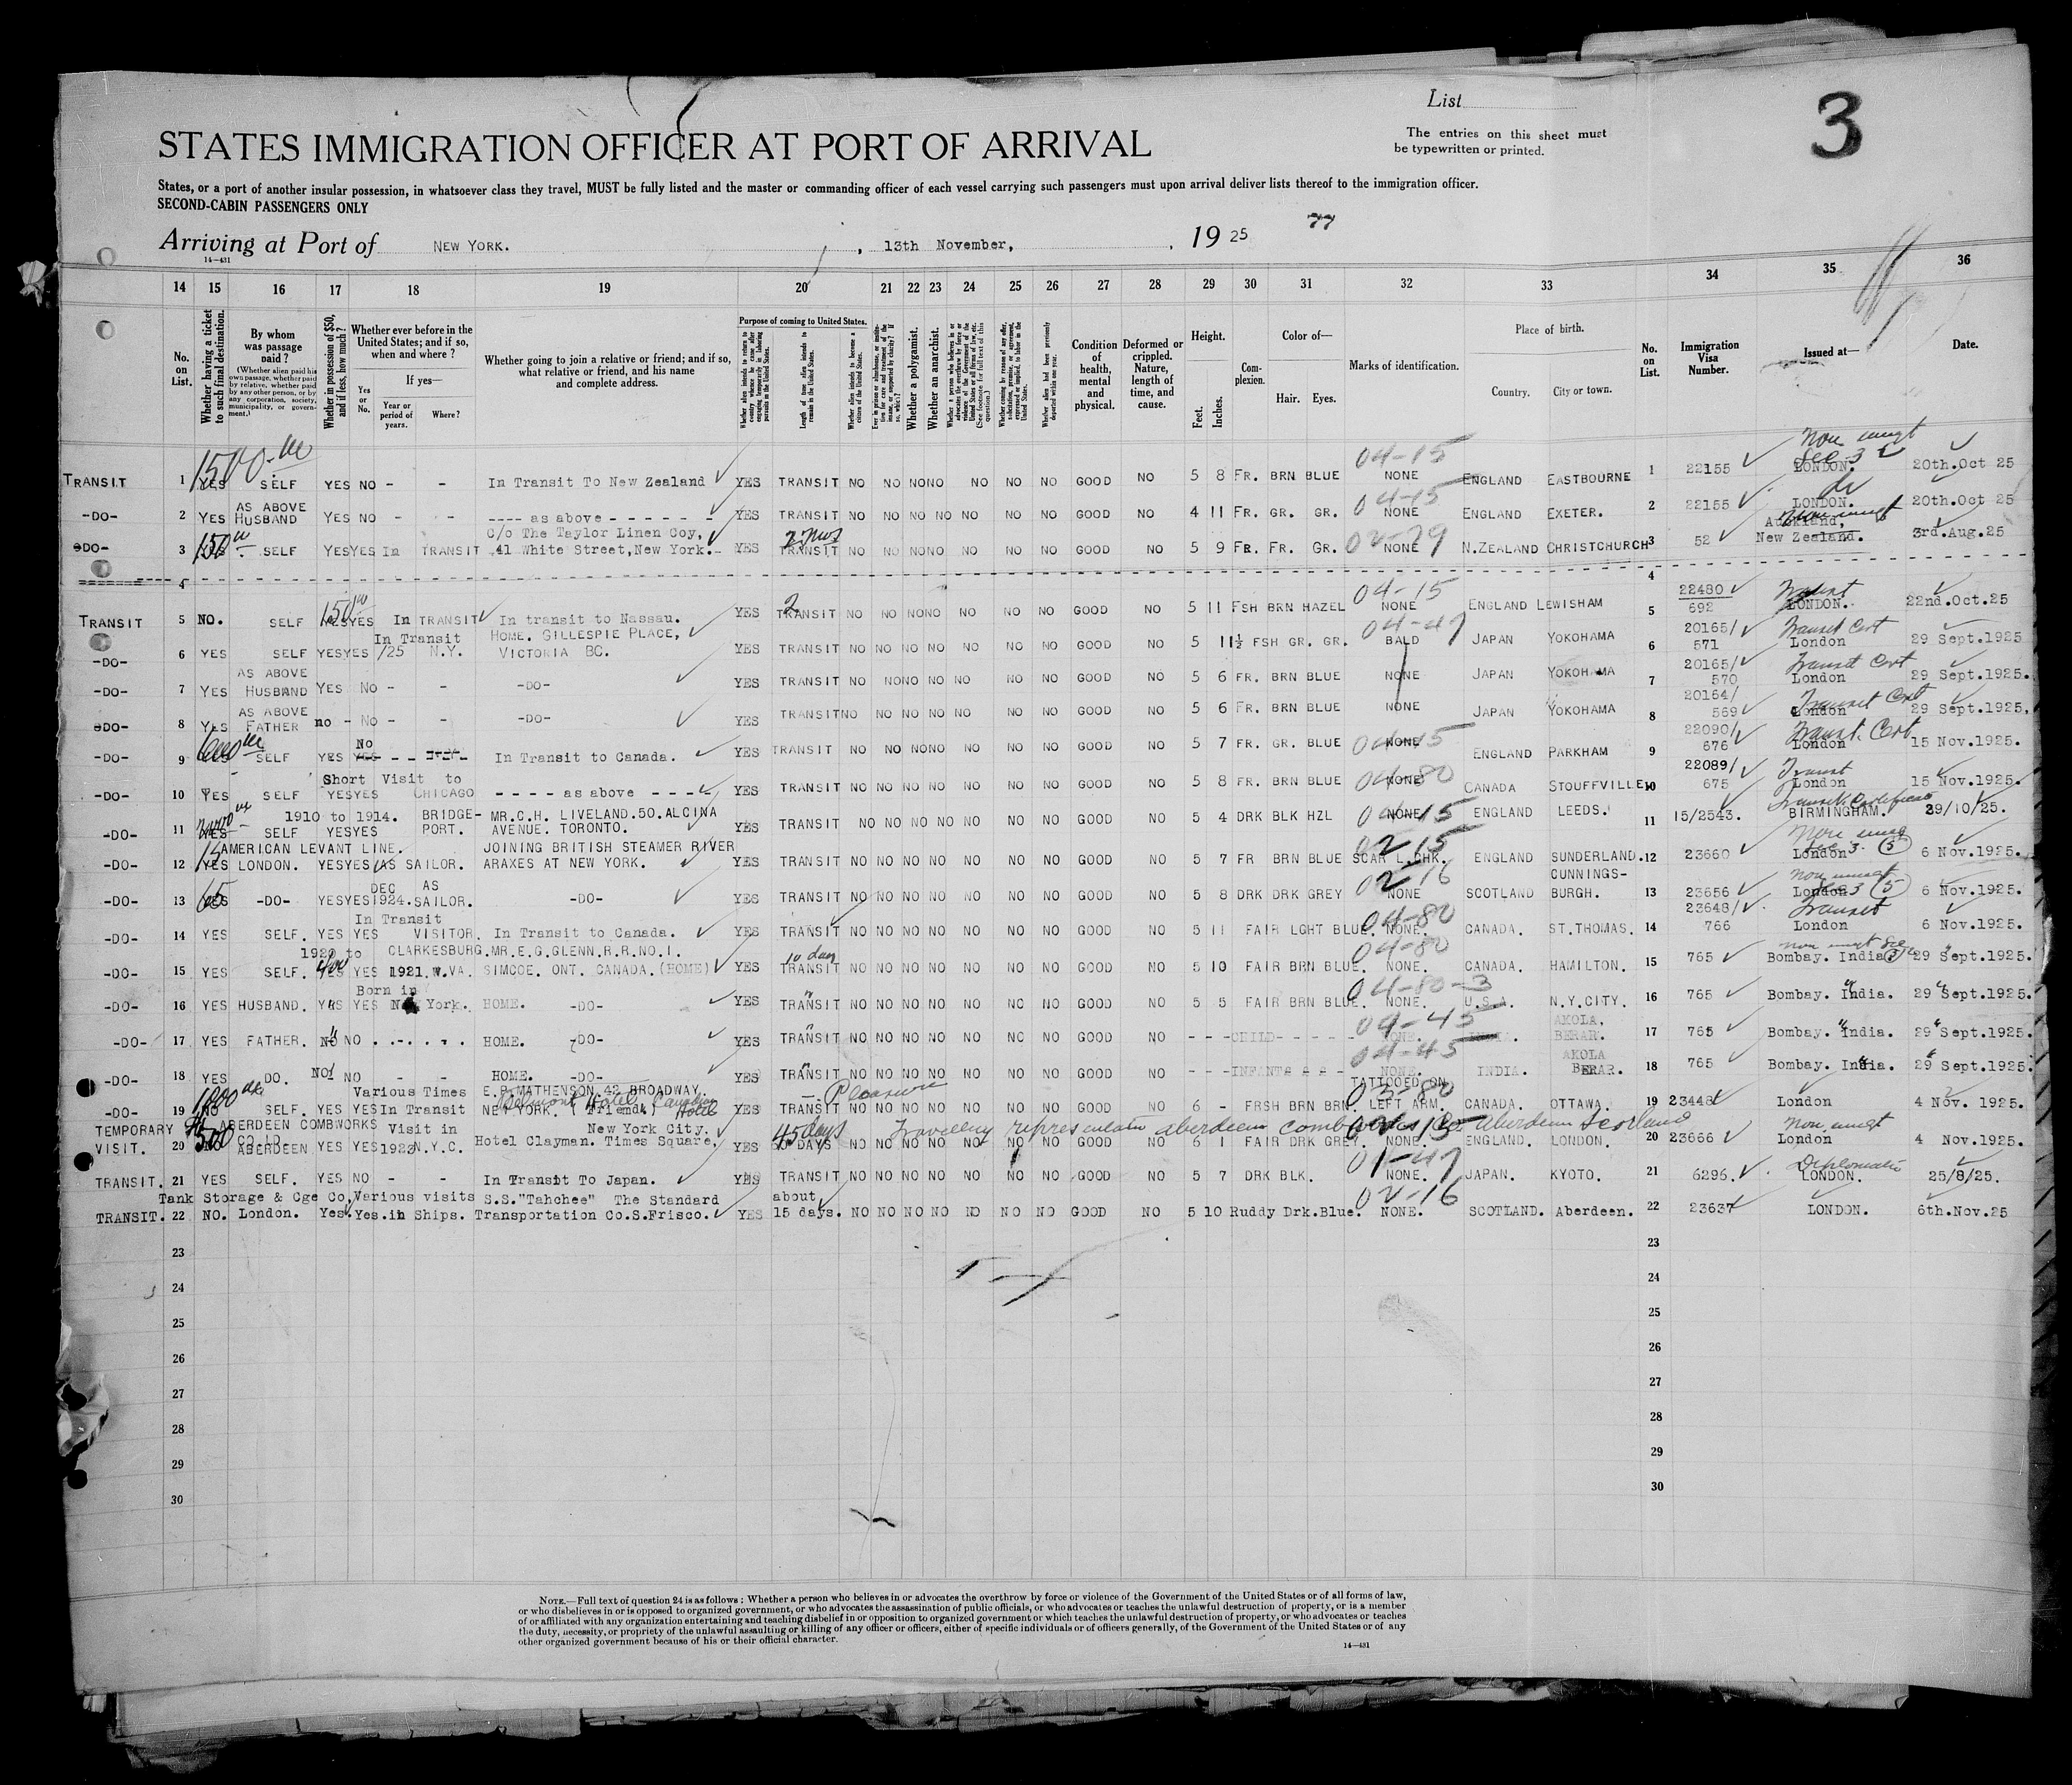 List
3
The entries on this sheet must
be typewritten or printed.
STATES IMMIGRATION OFFICER AT PORT OF ARRIVAL
States, or a port of another insular possession, in whatsoever class they travel, MUST be fully listed and the master or commanding officer of each vessel carrying such passengers must upon arrival deliver lists thereof to the immigration officer.
SECOND-CABIN PASSENGERS ONLY
Arriving at Port of NEW YORK. , 13th November, , 19 25
14—431
14 15 16 17 18 19 20 21 22 23 24 25 26 27 28 29 30 31 32 33 34 35 36
No. on List.
Whether having a ticket to such final destination.
By whom was passage paid?
(Whether alien paid his own passage, whether paid by relative, whether paid by any other person, or by any corporation, society, municipality, or government.)
Whether in possession of $50, and if less, how much?
Whether ever before in the United States; and if so, when and where?
If yes—
Yes or No.
Year or period of years.
Where?
Whether going to join a relative or friend; and if so, what relative or friend, and his name and complete address.
Purpose of coming to United States.
Whether a polygamist.
Whether an anarchist.
Condition of health, mental and physical.
Deformed or crippled. Nature, length of time, and cause.
Height.
Feet. Inches.
Complexion.
Color of—
Hair. Eyes.
Marks of identification.
Place of birth.
Country. City or town.
No. on List.
Immigration Visa Number.
Issued at—
Date.
TRANSIT 1 YES SELF YES NO - - In Transit To New Zealand YES TRANSIT NO NO NO NO NO NO NO GOOD NO 5 8 FR. BRN BLUE NONE 04-15 ENGLAND EASTBOURNE 1 22155 LONDON. 20th.Oct 25
-DO- 2 YES AS ABOVE HUSBAND YES NO - - ---- as above - - - - - - YES TRANSIT NO NO NO NO NO NO NO GOOD NO 4 11 FR. GR. GR. NONE 04-15 ENGLAND EXETER. 2 22155 LONDON. 20th.Oct 25
-DO- 3 YES 150 SELF YES YES In TRANSIT C/o The Taylor Linen Coy, 41 White Street,New York. YES TRANSIT NO NO NO NO NO NO NO GOOD NO 5 9 FR. FR. GR. NONE N.ZEALAND CHRISTCHURCH 3 52 Auckland, New Zealand. 3rd.Aug.25
4 4
TRANSIT 5 NO. SELF YES YES In TRANSIT In transit to Nassau. YES TRANSIT NO NO NO NO NO NO NO GOOD NO 5 11 FSH BRN HAZEL NONE 04-15 ENGLAND LEWISHAM 5 22480 692 LONDON. 22nd.Oct.25
-DO- 6 YES SELF YES YES In Transit /25 N.Y. HOME. GILLESPIE PLACE, VICTORIA BC. YES TRANSIT NO NO NO NO NO NO NO GOOD NO 5 11½ FSH GR. GR. BALD 04-47 JAPAN YOKOHAMA 6 20165/ 571 London Transit Cert 29 Sept.1925
-DO- 7 YES AS ABOVE HUSBAND YES NO - - -DO- YES TRANSIT NO NO NO NO NO NO NO GOOD NO 5 6 FR. BRN BLUE NONE JAPAN YOKOHAMA 7 20165/ 570 London Transit Cert 29 Sept.1925.
-DO- 8 YES AS ABOVE FATHER no - No - - -DO- YES TRANSIT NO NO NO NO NO NO NO GOOD NO 5 6 FR. BRN BLUE NONE JAPAN YOKOHAMA 8 20164/ 569 London Transit Cert 29 Sept.1925.
-DO- 9 YES SELF YES No YES In Transit to Canada. YES TRANSIT NO NO NO NO NO NO NO GOOD NO 5 7 FR. GR. BLUE NONE 04-15 ENGLAND PARKHAM 9 22090/ 676 London Transit Cert 15 Nov.1925.
-DO- 10 YES SELF YES YES Short Visit to CHICAGO - - - - as above - - - YES TRANSIT NO NO NO NO NO NO NO GOOD NO 5 8 FR. BRN BLUE NONE 04-80 CANADA STOUFFVILLE 10 22089/ 675 London Transit 15 Nov.1925.
-DO- 11 YES SELF YES YES 1910 to 1914. BRIDGE-PORT. MR.C.H. LIVELAND.50.ALCINA AVENUE. TORONTO. YES TRANSIT NO NO NO NO NO NO NO GOOD NO 5 4 DRK BLK HZL NONE 04-15 ENGLAND LEEDS. 11 15/2543. BIRMINGHAM. Transit Certificate 29/10/25.
-DO- 12 YES AMERICAN LEVANT LINE. LONDON. YES YES AS SAILOR. JOINING BRITISH STEAMER RIVER ARAXES AT NEW YORK. YES TRANSIT NO NO NO NO NO NO NO GOOD NO 5 7 FR BRN BLUE SCAR L.CHK. 02-15 ENGLAND SUNDERLAND. 12 23660 London 6 Nov.1925.
-DO- 13 YES 65 -DO- YES YES DEC 1924. AS SAILOR. -DO- YES TRANSIT NO NO NO NO NO NO NO GOOD NO 5 8 DRK DRK GREY NONE 02-16 SCOTLAND CUNNINGS-BURGH. 13 23656 London 6 Nov.1925.
-DO- 14 YES SELF. YES YES In Transit VISITOR. In Transit to Canada. YES TRANSIT NO NO NO NO NO NO NO GOOD NO 5 11 FAIR LGHT BLUE. NONE. 04-80 CANADA. ST.THOMAS. 14 23648/ 766 London Transit 6 Nov.1925.
-DO- 15 YES SELF. YES 400 YES 1920 to 1921. CLARKESBURG. W.VA. MR.E.G.GLENN.R.R.NO.1. SIMCOE. ONT. CANADA.(HOME) YES TRANSIT 10 day NO NO NO NO NO NO NO GOOD NO 5 10 FAIR BRN BLUE. NONE. 04-80 CANADA. HAMILTON. 15 765 Bombay. India 29 Sept.1925.
-DO- 16 YES HUSBAND. YES YES Born in New York. HOME. -DO- YES TRANSIT NO NO NO NO NO NO NO GOOD NO 5 5 FAIR BRN BLUE. NONE. 04-80-3 U.S.A. N.Y.CITY. 16 765 Bombay. India. 29 Sept.1925.
-DO- 17 YES FATHER. NO NO . . - . . . HOME. -DO- YES TRANSIT NO NO NO NO NO NO NO GOOD NO - - -CHILD- - - - - NONE. 04-45 INDIA. AKOLA. BERAR. 17 765 Bombay. India. 29 Sept.1925.
-DO- 18 YES DO. NO NO - - HOME. -DO- YES TRANSIT NO NO NO NO NO NO NO GOOD NO - - -INFANT - - - NONE. 04-45 INDIA. AKOLA BERAR. 18 765 Bombay. India. 29 Sept.1925.
-DO- 19 NO SELF. YES YES Various Times In Transit E.P.MATHENSON 42 BROADWAY. NEW YORK. ( Friend.) Belmont Hotel YES TRANSIT Pleasure NO NO NO NO NO NO NO GOOD NO 6 - FRSH BRN BRN. TATTOOED ON LEFT ARM. CANADA. OTTAWA. 19 23448 London 4 Nov. 1925.
TEMPORARY VISIT. 20 NO 500 ABERDEEN COMBWORKS CO LD. ABERDEEN YES YES Visit in 1923 N.Y.C. New York City. Hotel Clayman. Times Square. YES 45 days NO NO NO NO NO NO NO GOOD NO 6 1 FAIR DRK GREY. NONE. ENGLAND. LONDON. 20 23666 London 4 Nov.1925.
Travelling representative aberdeen combworks Co Aberdeen Scotland
TRANSIT. 21 YES SELF. YES NO - - In Transit To Japan. YES TRANSIT NO NO NO NO NO NO NO GOOD NO 5 7 DRK BLK. NONE. 01-47 JAPAN. KYOTO. 21 6296. LONDON. Diplomatic 25/8/25.
TRANSIT. 22 NO. Tank Storage & Cge Co, London. Yes. Yes. Various visits in Ships. S.S."Tahchee" The Standard Transportation Co.S.Frisco. YES about 15 days. NO NO NO NO NO NO NO GOOD NO 5 10 Ruddy Drk.Blue. NONE. 02-16 SCOTLAND. Aberdeen. 22 23637 LONDON. 6th.Nov.25
23 23
24 24
25 25
26 26
27 27
28 28
29 29
30 30
NOTE.—Full text of question 24 is as follows: Whether a person who believes in or advocates the overthrow by force or violence of the Government of the United States or of all forms of law,
or who disbelieves in or is opposed to organized government, or who advocates the assassination of public officials, or who advocates or teaches the unlawful destruction of property, or is a member
of or affiliated with any organization entertaining and teaching disbelief in or opposition to organized government or which teaches the unlawful destruction of property, or who advocates or teaches
the duty, necessity, or propriety of the unlawful assaulting or killing of any officer or officers, either of specific individuals or of officers generally, of the Government of the United States or of any
other organized government because of his or their official character.
14—431